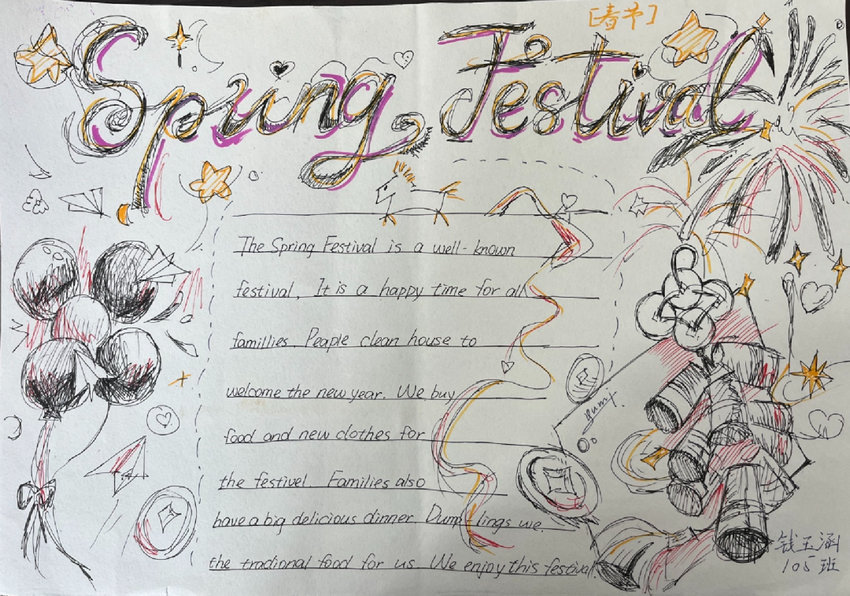 [春节]
Spring Festival
The Spring Festival is a well-known
festival. It is a happy time for all
famillies. Peaple clean house to
welcome the new year. We buy
food and new clothes for
the festivel. Families also
have a big delicious dinner. Dump lings we
the tradional food for us. We enjoy this festival.
钱玉涵
105班